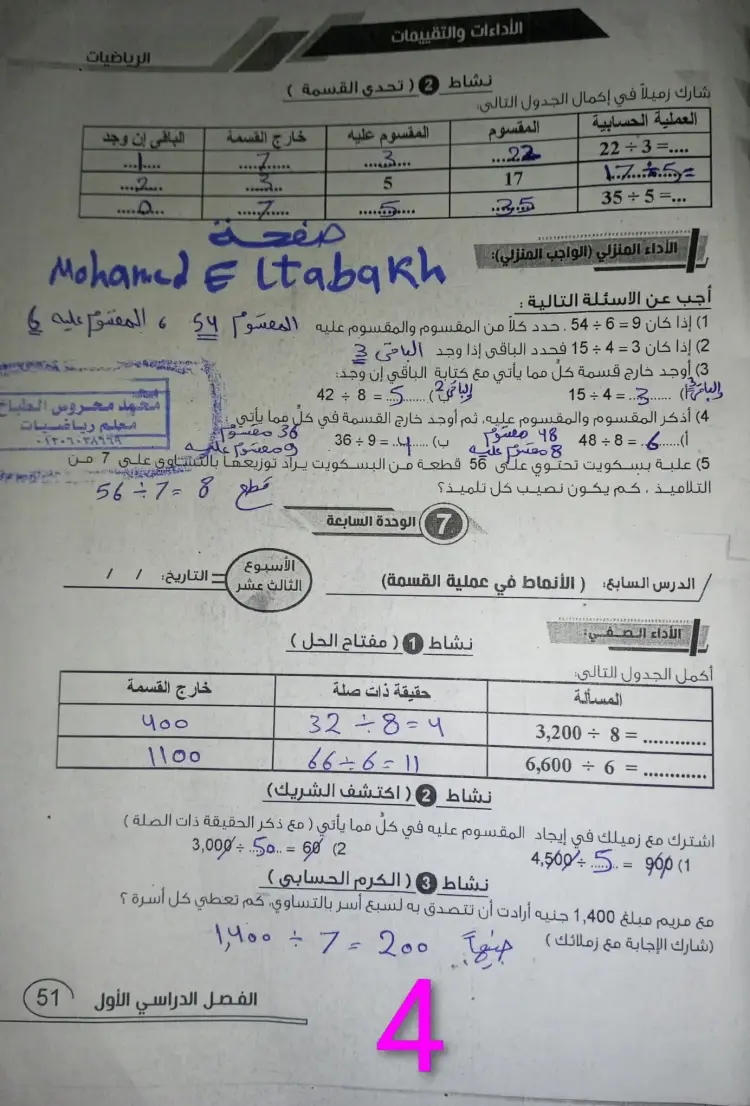 الأداءات والتقييمات
الرياضيات
نشاط 2 ( تحدي القسمة )
شارك زميلاً في إكمال الجدول التالي:
العملية الحسابية المقسوم المقسوم عليه خارج القسمة الباقي إن وجد
22 ÷ 3 =.... 22 3 7 1
17 ÷ 5 = 17 5 3 2
35 ÷ 5 =... 35 5 7 0
صفحة
Mohamed Eltabakh
الأداء المنزلي (الواجب المنزلي):
أجب عن الاسئلة التالية :
1) إذا كان 9 = 6 ÷ 54 . حدد كلاً من المقسوم والمقسوم عليه المقسوم 54 ، المقسوم عليه 6
2) إذا كان 3 = 4 ÷ 15 فحدد الباقي إذا وجد الباقي 3
3) أوجد خارج قسمة كل مما يأتي مع كتابة الباقي إن وجد:
أ) 15 ÷ 4 = ..3...... الباقي 3 ب) 42 ÷ 8 = ..5.... الباقي 2
4) أذكر المقسوم والمقسوم عليه، ثم أوجد خارج القسمة في كل مما يأتي :
48 مقسوم 36 مقسوم
أ) 48 ÷ 8 = .6..... ب) 36 ÷ 9 = ..4......
8 مقسوم عليه 9 مقسوم عليه
محمد محروس الطباخ
معلم رياضيات
5) علبة بسكويت تحتوي على 56 قطعة من البسكويت يراد توزيعها بالتساوي على 7 من
التلاميذ ، كم يكون نصيب كل تلميذ؟ 56 ÷ 7 = 8 قطع
7 الوحدة السابعة
الدرس السابع: ( الأنماط في عملية القسمة) الأسبوع الثالث عشر التاريخ: / /
الأداء الصفي:
نشاط 1 ( مفتاح الحل )
أكمل الجدول التالي:
المسألة حقيقة ذات صلة خارج القسمة
3,200 ÷ 8 = ............ 32 ÷ 8 = 4 400
6,600 ÷ 6 = ............ 66 ÷ 6 = 11 1100
نشاط 2 ( اكتشف الشريك)
اشترك مع زميلك في إيجاد المقسوم عليه في كل مما يأتي ( مع ذكر الحقيقة ذات الصلة )
1) 4,500 ÷ ..5.... = 900 2) 3,000 ÷ ..50.. = 60
نشاط 3 ( الكرم الحسابي )
مع مريم مبلغ 1,400 جنيه أرادت أن تتصدق به لسبع أسر بالتساوي، كم تعطي كل أسرة ؟
(شارك الإجابة مع زملائك ) 1,400 ÷ 7 = 200 جنيهاً
الفصل الدراسي الأول 51
4